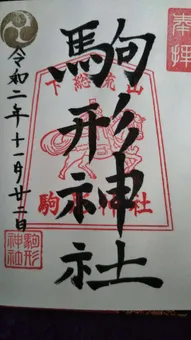 奉拝
下総流山
駒形神社
駒形神社
令和二年十一月廿二日
駒形
神社